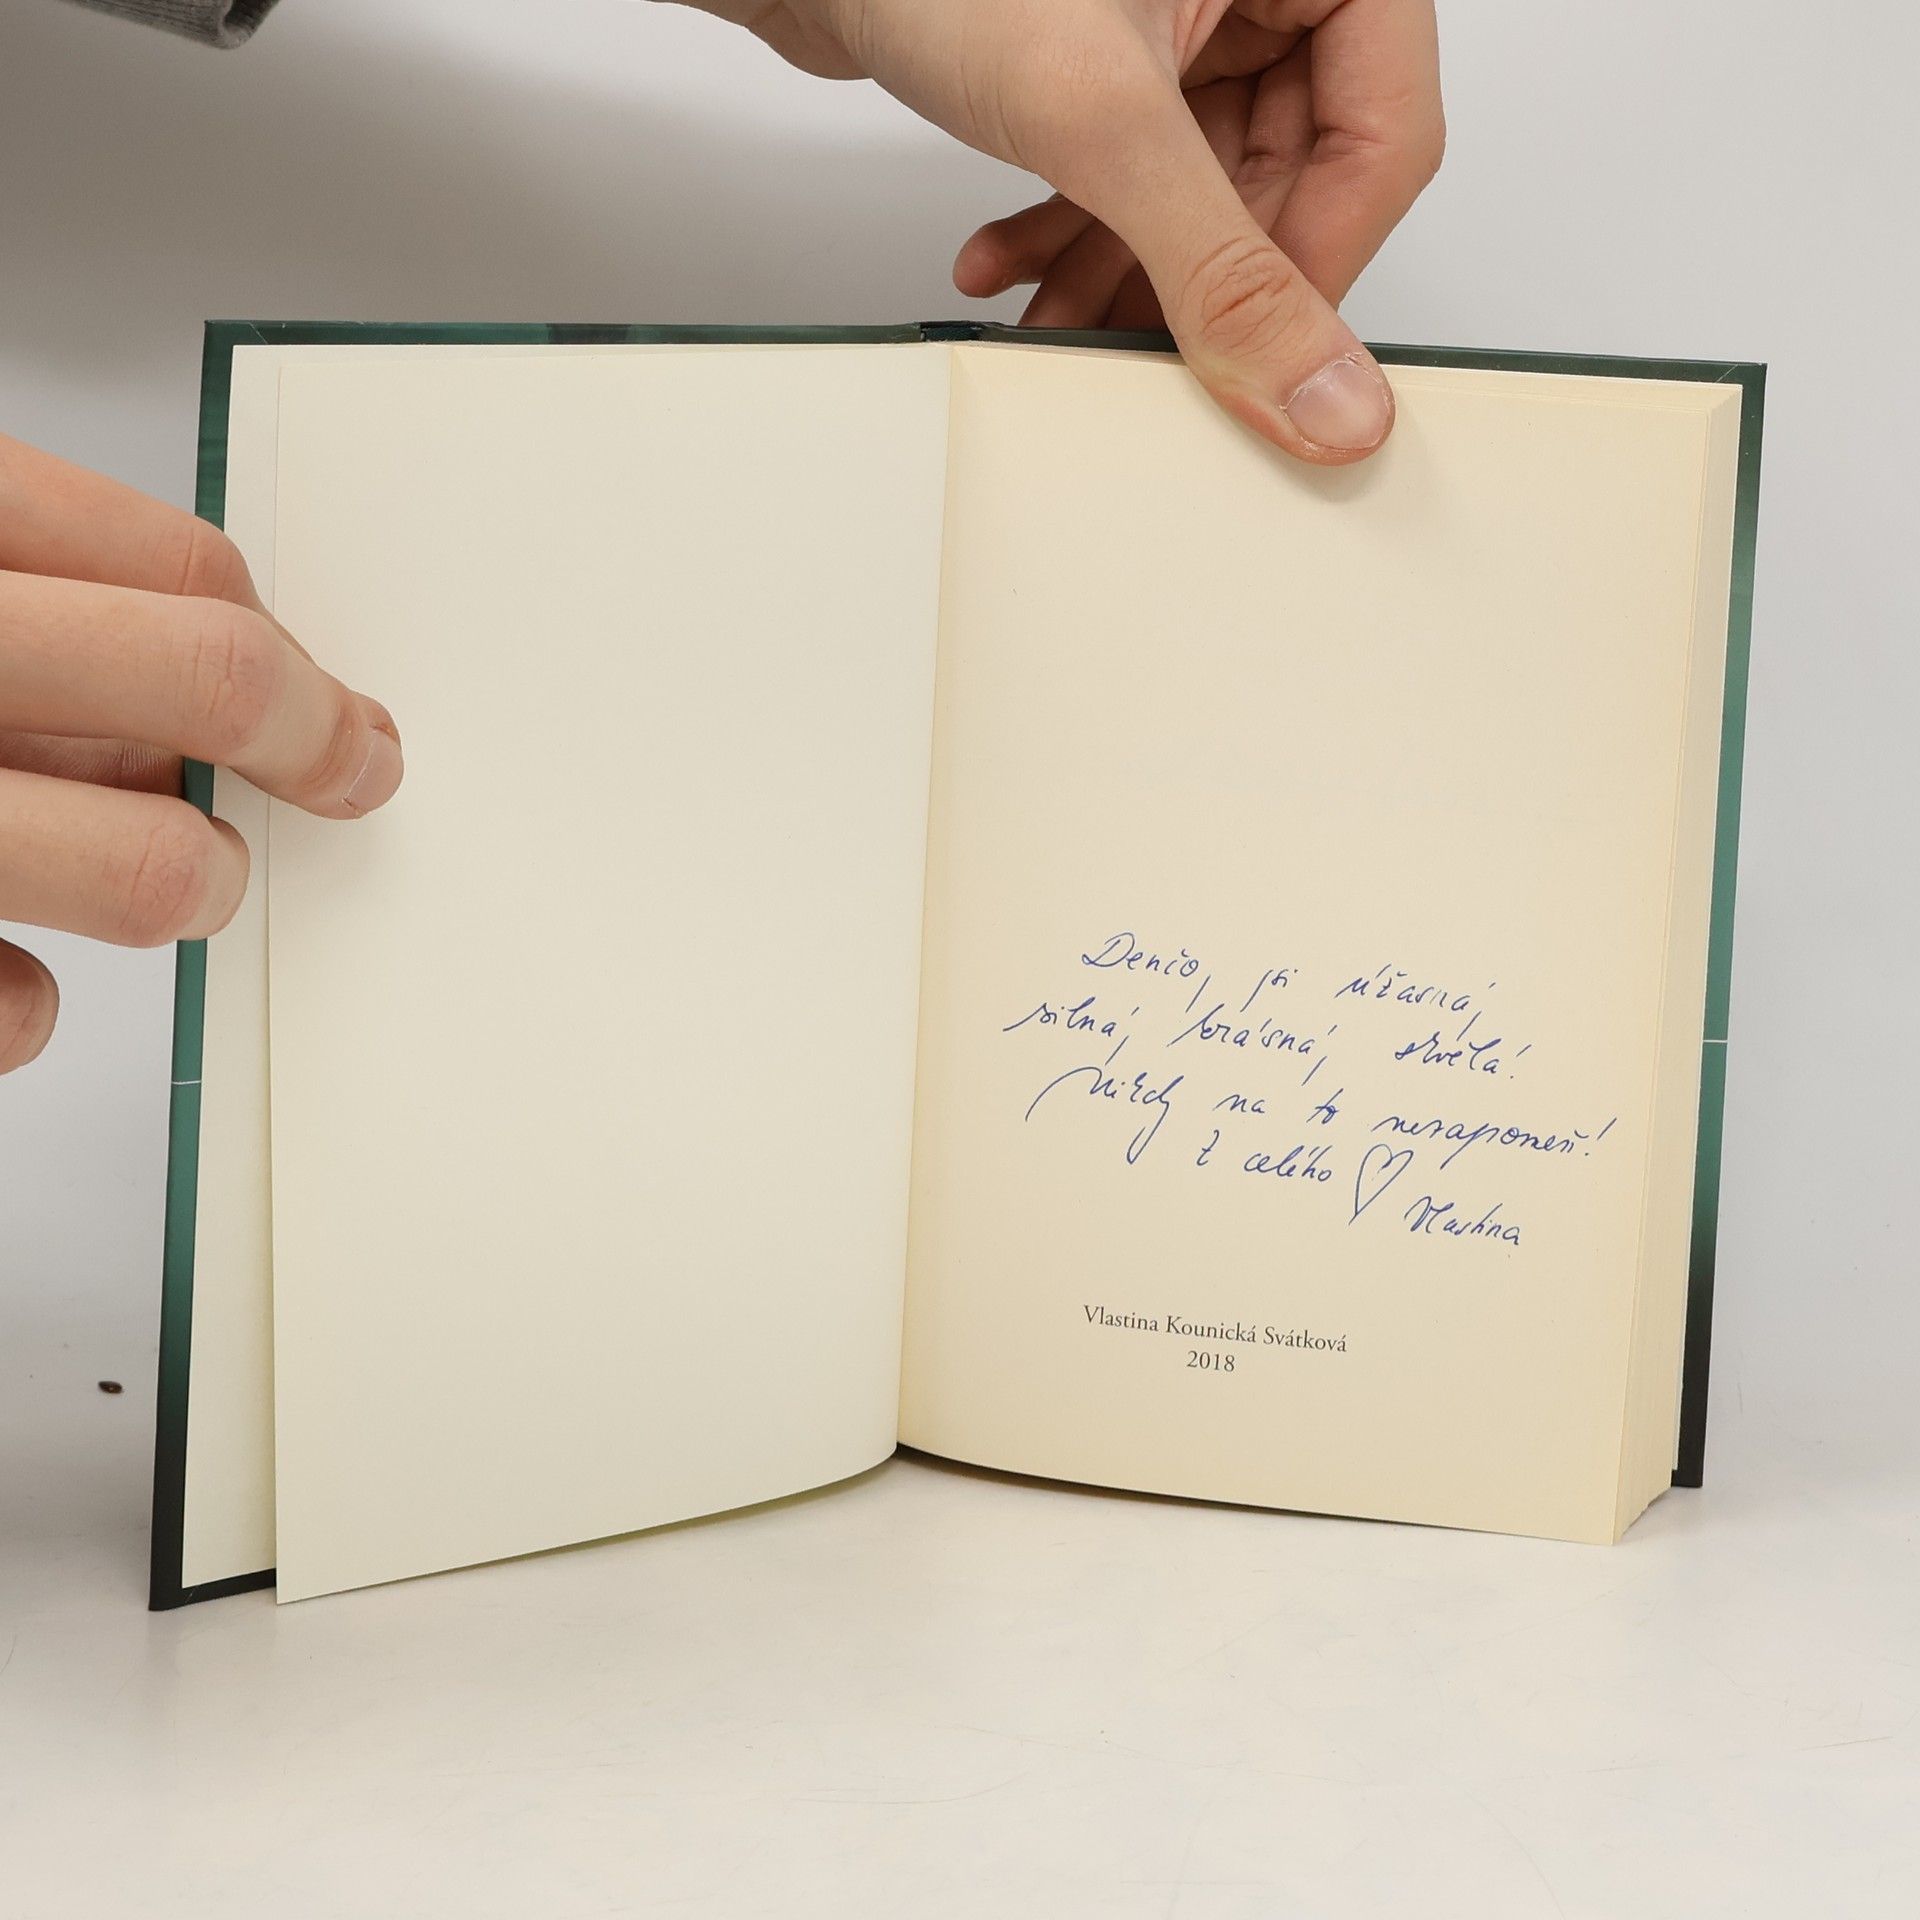 Denčo, jsi úžasná,
silná, krásná, skvělá!
Nikdy na to nezapomeň!
Z celého ♡ Vlastina
Vlastina Kounická Svátková
2018